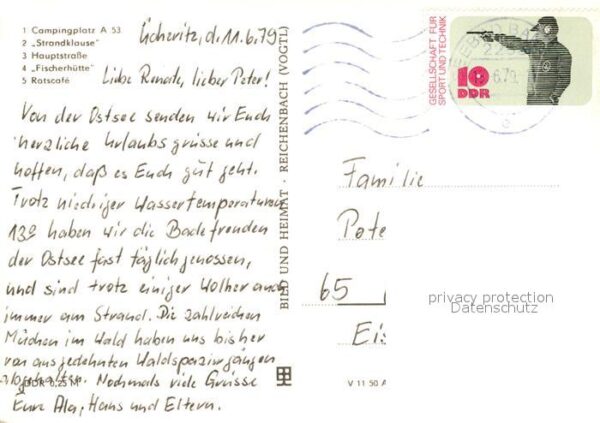 1 Campingplatz A 53
2 „Strandklause"
3 Hauptstraße
4 „Fischerhütte"
5 Ratscafé
Ückeritz, d. 11.6.79
Liebe Renate, lieber Peter!
Von der Ostsee senden wir Euch
herzliche Urlaubsgrüsse und
hoffen, daß es Euch gut geht.
Trotz niedriger Wassertemperaturen
13° haben wir die Badefreuden
der Ostsee fast täglich genossen,
und sind trotz einiger Wolken auch
immer am Strand. Die zahlreichen
Mücken im Wald haben uns bisher
von ausgedehnten Waldspaziergängen
abgehalten. Nochmals viele Grüsse
Eure Hans und Eltern.
DDR 0,25 M
BILD UND HEIMAT · REICHENBACH (VOGTL)
GESELLSCHAFT FÜR
SPORT UND TECHNIK
10
DDR
Familie
Pete
65
Eis
privacy protection
Datenschutz
V 11 50 A